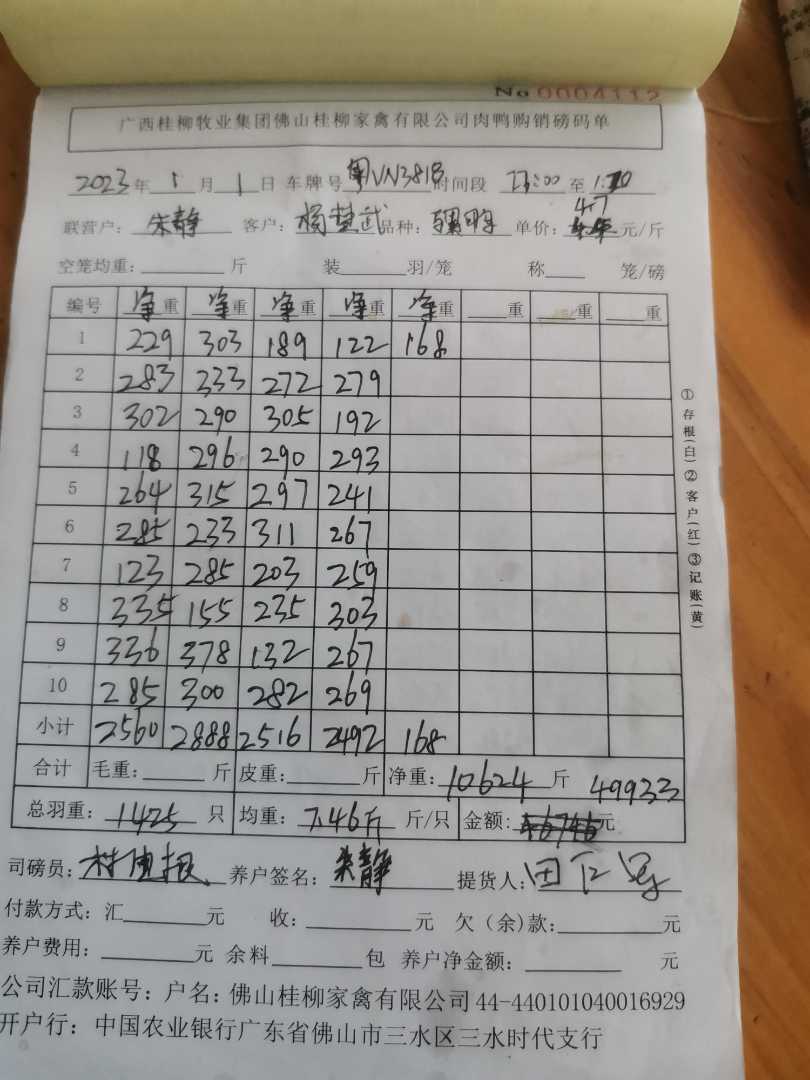 No 0004112
广西桂柳牧业集团佛山桂柳家禽有限公司肉鸭购销磅码单
2023年 1月 1日 车牌号 粤VN381B 时间段 :00 至
4.7
联营户: 朱静 客户: 杨楚武 品种: 单价: 元/斤
空笼均重: 斤 装 羽/笼 称 笼/磅
编号 净重 净重 净重 净重 净重 重 重 重
1 229 303 189 122 168
2 283 333 272 279
3 302 290 305 192
4 118 296 290 293
5 264 315 297 241
6 285 233 311 267
7 123 285 203 259
8 335 155 235 303
9 336 378 132 267
10 285 300 282 269
小计 2560 2888 2516 2492 168
合计 毛重: 斤 皮重: 斤 净重: 10624 斤 49933
总羽重: 1425 只 均重: 7.46斤 斤/只 金额: 46746元
司磅员: 养户签名: 朱静 提货人: 田
付款方式: 汇 元 收: 元 欠(余)款: 元
养户费用: 元 余料 包 养户净金额: 元
公司汇款账号: 户名: 佛山桂柳家禽有限公司 44-440101040016929
开户行: 中国农业银行广东省佛山市三水区三水时代支行
①存根(白)②客户(红)③记账(黄)